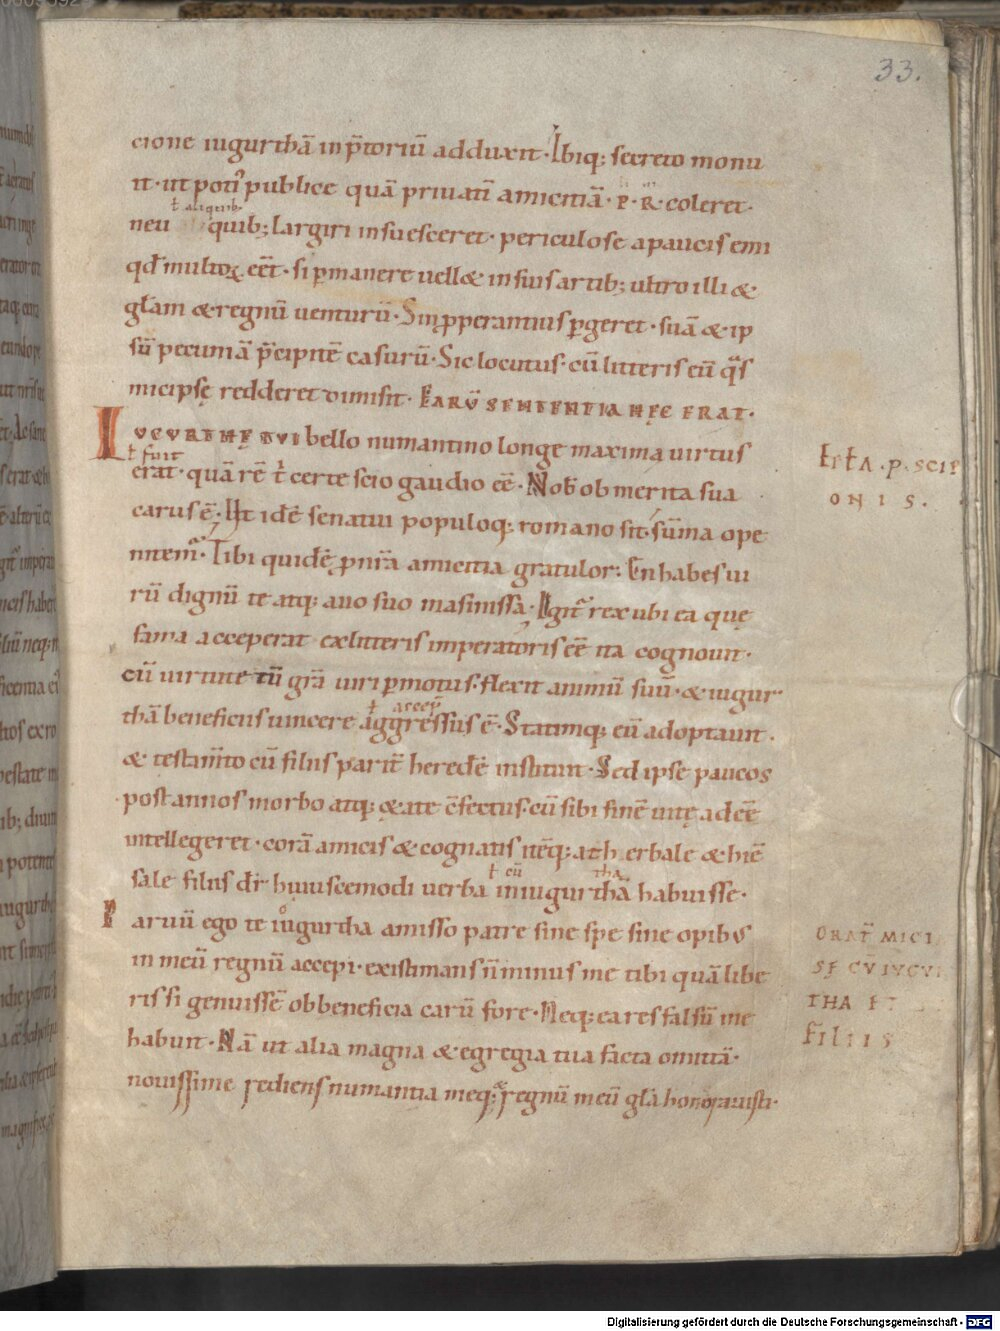 33.
cione iugurthā in p̄toriū adduxit · Ibiq; secreto monu
it · ut poti᷒ publice quā priuatī amicitiā · P · R · coleret ·
ł aliquib;
neu quib; largiri insuesceret · periculose a paucis emi
qđ multoꝝ eēt · si ꝑmanere uell& in suis artib; ultro illi &
głam & regnū uenturū · Sin ꝓperantius ꝑgeret · suā & ip
sū pecuniā p̄cipitē casurū · Sic locutus · cū litteris eū q̄s
micipsę redderet dimisit · EARŪ SENTENTIA HĘC ERAT ·
IUGURTHĘ TUI bello numantino longe maxima uirtus
ł fuit
erat · quā rē t̄ certe scio gaudio eē · Nob̄ ob merita sua
carus ē · Ut idē senatui populoq; romano sit · sūma ope
nitem᷒ · Tibi quidē ꝓ nr̄a amicitia gratulor · En habes ui
rū dignū te atq; auo suo masinissā · Igit̄ rex ubi ea quę
fama acceperat ex litteris imperatoris eē ita cognouit ·
cū uirtute tū gr̄a uiri ꝑmotus · flexit animū suū · & iugur
ł accep̄
thā beneficiis uincere aggressus ē · Statimq; eū adoptauit ·
& testam̄to cū filiis parit̄ heredē instituit · Sed ipse paucos
post annos morbo atq; &ate c̄fectus · cū sibi finē uitę adeē
intellegeret · corā amicis & cognatis itēq; atherbale & hiē
sale filiis dr̄ huiuscemodi uerba in iugurthā habuisse ·
ł cū tha
Paruū ego te iugurtha amisso patre sine spe sine opibus
in meū regnū accepi · existimans n̄ minus me tibi quā libe
ris si genuissē ob beneficia carū fore · Neq; ea res falsū me
habuit · Nā ut alia magna & egregia tua facta omittā ·
nouissime rediens numantia meq; regnū meū głā honorauisti ·
EPŁA · P · SCIP
ONIS.
ORAT̄ MICI
SE CŪ IUGU
THA ET
FILIIS
Digitalisierung gefördert durch die Deutsche Forschungsgemeinschaft - DFG